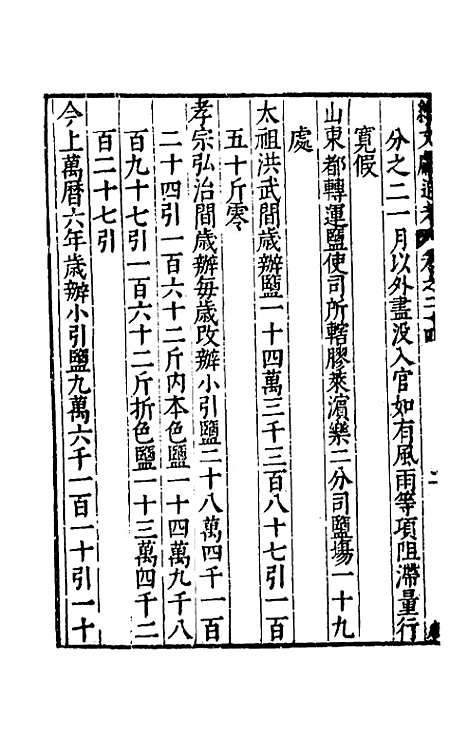 續文獻通考卷之二十四
分之二一月以外盡没入官如有風雨等項阻滯量行
寛假
山東都轉運鹽使司所轄膠萊濵樂二分司鹽塲一十九
處
太祖洪武間歳辦鹽一十四萬三千三百八十七引一百
五十斤零
孝宗弘治間歳辦每歳改辦小引鹽二十八萬四千一百
二十四引一百六十二斤内本色鹽一十四萬九千八
百九十七引一百六十二斤折色鹽一十三萬四千二
百二十七引
今上萬曆六年歳辦小引鹽九萬六千一百一十引一十